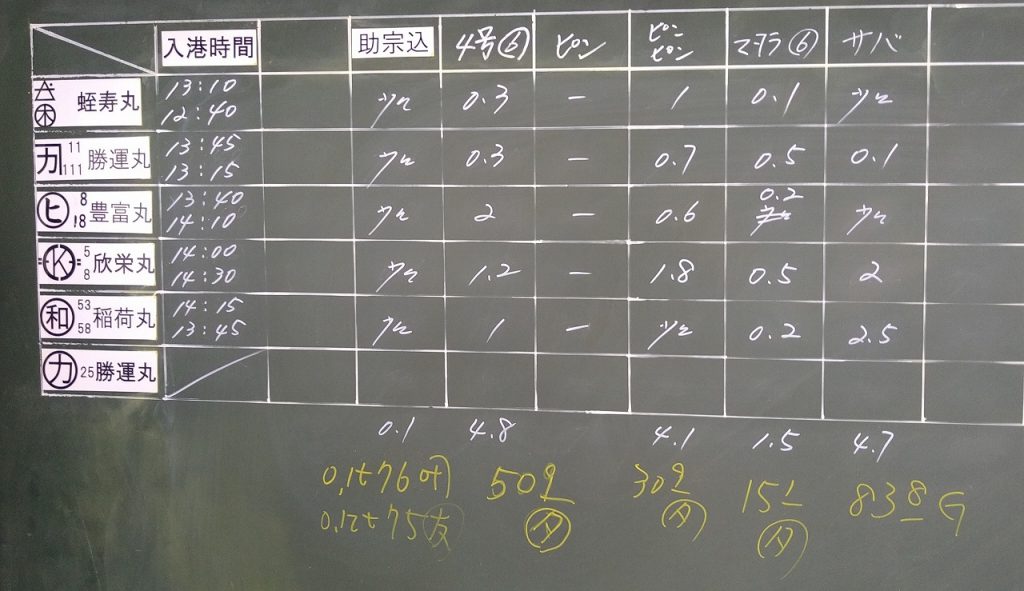 入港時間 助宗込 4号⑥ ピン ピンピン マダラ⑥ サバ
蛭寿丸 13:10 12:40 少々 0.3 － 1 0.1 少々
カ 11 111 勝運丸 13:45 13:15 少々 0.3 － 0.7 0.5 0.1
ヒ 8 18 豊富丸 13:40 14:10 少々 2 － 0.6 0.2 少々
K 5 8 欣栄丸 14:00 14:30 少々 1.2 － 1.8 0.5 2
和 53 58 稲荷丸 14:15 13:45 少々 1 － 少々 0.2 2.5
カ 25 勝運丸
0.1 4.8 4.1 1.5 4.7
0.1t 76 509 309 151 838 G
0.1t 75 友 タ タ タ